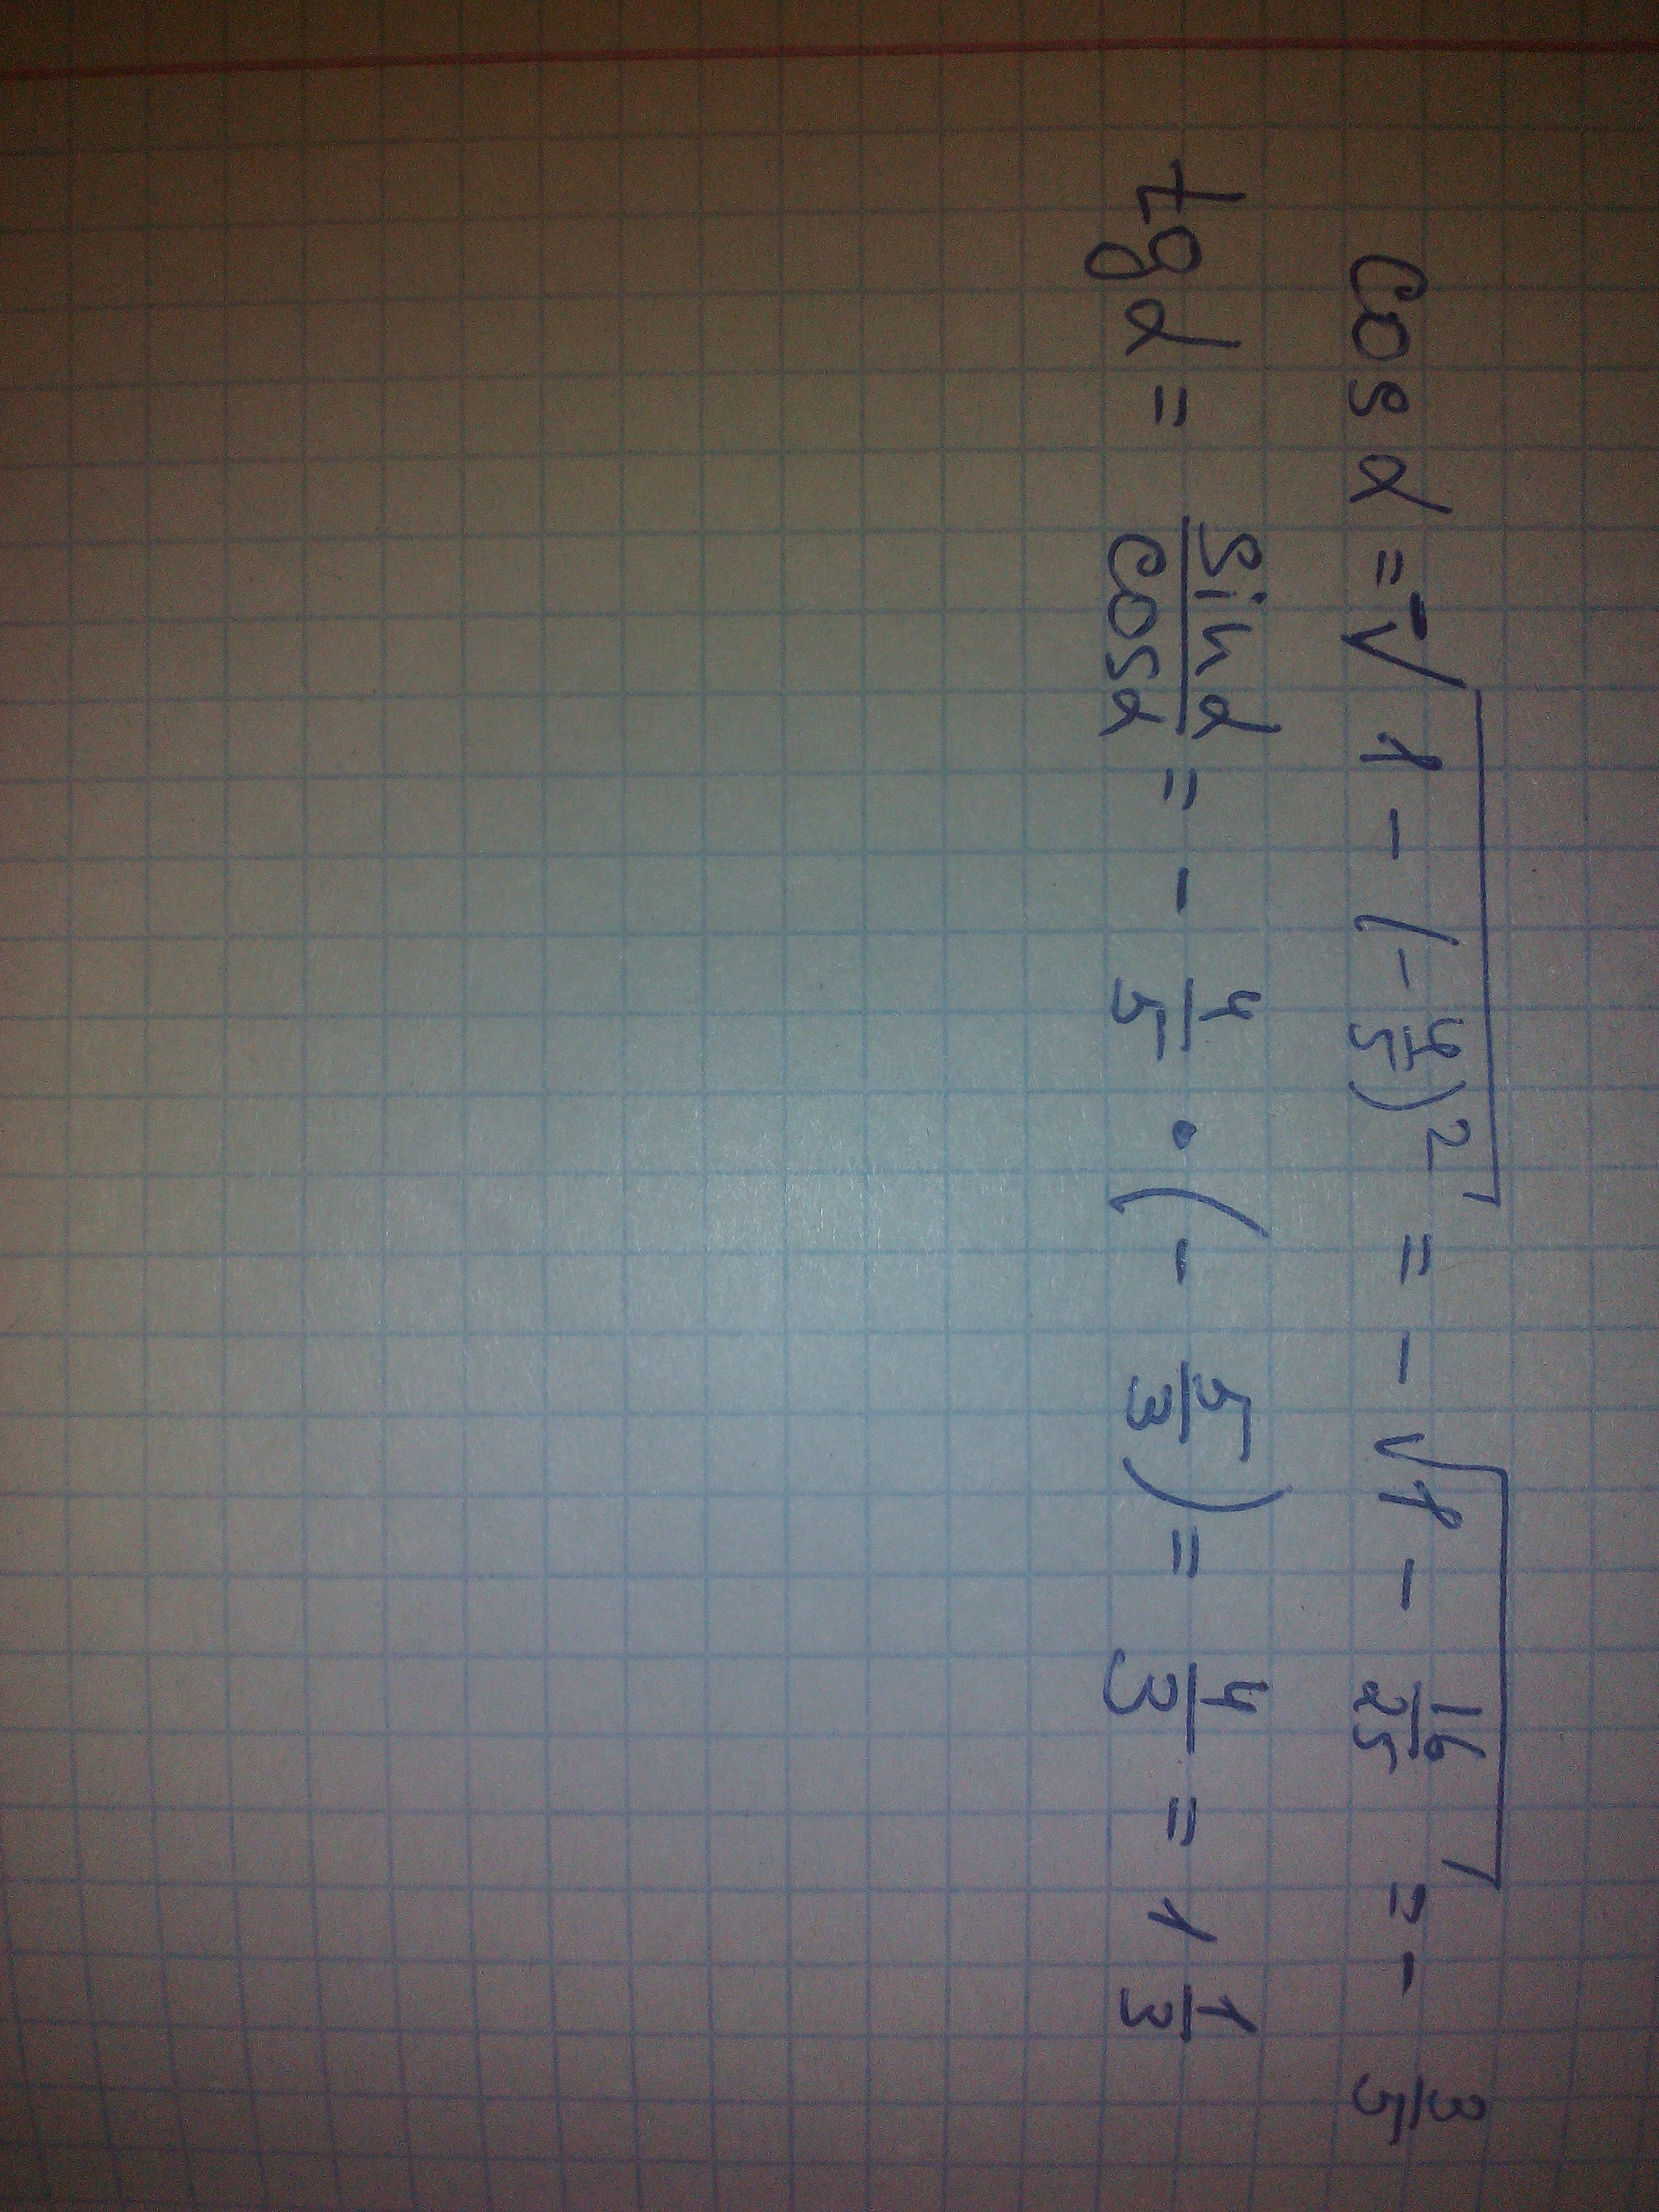 cos α = -√(1 - (-4/5)²) = - √(1 - 16/25) = - 3/5
tg α = sin α/cos α = - 4/5 · (- 5/3) = 4/3 = 1 1/3